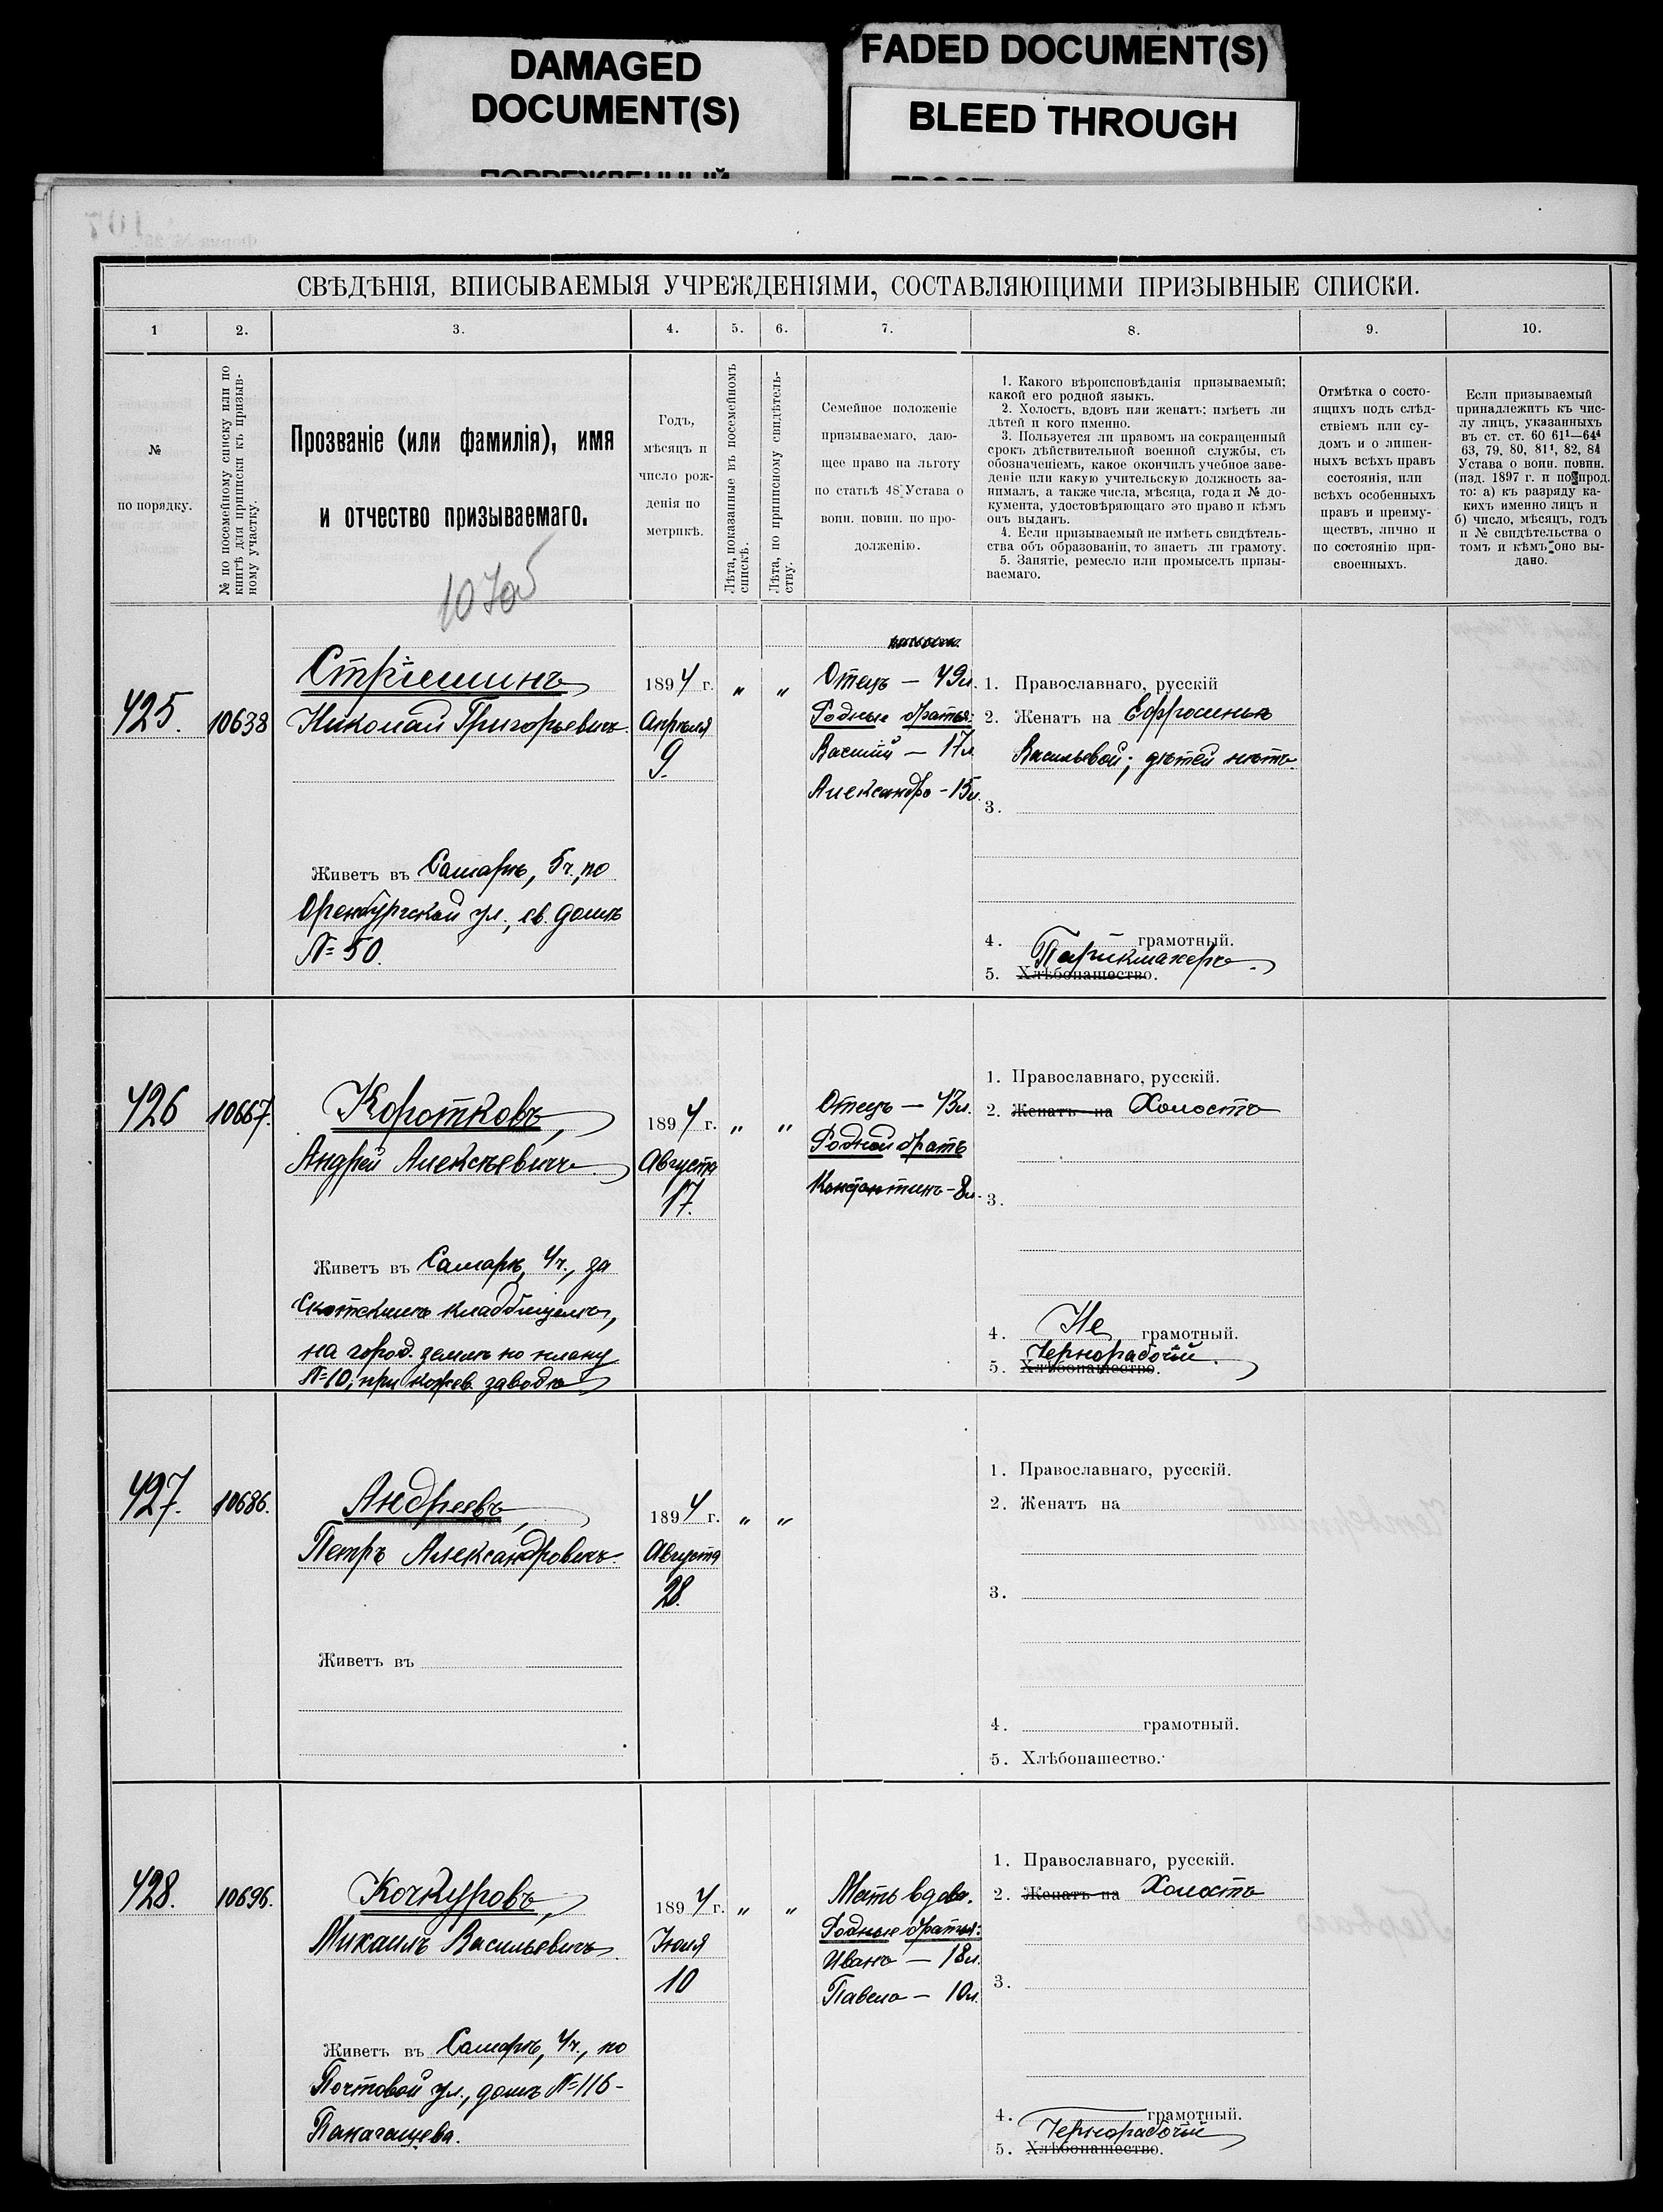 DAMAGED
DOCUMENT(S)
FADED DOCUMENT(S)
BLEED THROUGH
107
СВѢДѢНІЯ, ВПИСЫВАЕМЫЯ УЧРЕЖДЕНІЯМИ, СОСТАВЛЯЮЩИМИ ПРИЗЫВНЫЕ СПИСКИ.
1 2. 3. 4. 5. 6. 7. 8. 9. 10.
№
по порядку.
№ по посемейному списку или по
книгѣ для приписки къ призыв-
ному участку.
Прозваніе (или фамилія), имя
и отчество призываемаго.
Годъ,
мѣсяцъ и
число рож-
денія по
метрикѣ.
Лѣта, показанные въ посемейномъ
спискѣ.
Лѣта, по приписному свидѣтель-
ству.
Семейное положеніе
призываемаго, даю-
щее право на льготу
по статьѣ 48 Устава о
воин. повин. по про-
долженію.
1. Какого вѣроисповѣданія призываемый;
какой его родной языкъ.
2. Холостъ, вдовъ или женатъ; имѣетъ ли
дѣтей и кого именно.
3. Пользуется ли правомъ на сокращенный
срокъ дѣйствительной военной службы, съ
обозначеніемъ, какое окончилъ учебное заве-
деніе или какую учительскую должность за-
нималъ, а также числа, мѣсяца, года и № до-
кумента, удостовѣряющаго это право и кѣмъ
онъ выданъ.
4. Если призываемый не имѣетъ свидѣтель-
ства объ образованіи, то знаетъ ли грамоту.
5. Занятіе, ремесло или промыселъ призы-
ваемаго.
Отмѣтка о состо-
ящихъ подъ слѣд-
ствіемъ или су-
домъ и о лишен-
ныхъ всѣхъ правъ
состоянія, или
всѣхъ особенныхъ
правъ и преиму-
ществъ, лично и
по состоянію при-
своенныхъ.
Если призываемый
принадлежитъ къ чис-
лу лицъ, указанныхъ
въ ст. ст. 60 61¹—64⁴
63, 79, 80, 81¹, 82, 84
Устава о воин. повин.
(изд. 1897 г. и по прод.
то: а) къ разряду ка-
кихъ именно лицъ и
б) число, мѣсяцъ, годъ
и № свидѣтельства о
томъ и кѣмъ оно вы-
дано.
425.
10638
Николай Григорьевичъ
Живетъ въ Самарѣ, 5ч., по
Оренбургской ул., св. домъ
№ 50.
1894 г.
Апрѣля
9.
" "
Отецъ — 49л.
Родные братья:
Василій — 17л.
Александръ — 15л.
1. Православнаго, русскій
2. Женатъ на Ефросиньѣ
Васильевой; дѣтей нѣтъ.
3.
4. грамотный.
Парикмахеръ.
5. Хлѣбопашество.
426
10667.
Коротковъ,
Андрей Алексѣевичъ
Живетъ въ Самарѣ, 4ч., за
Скотскимъ кладбищемъ,
на город. землѣ по плану
№ 10, при кожев. заводѣ
1894 г.
Августа
17.
" "
Отецъ — 43л.
Родной братъ
Константинъ — 8л.
1. Православнаго, русскій.
2. Женатъ на Холостъ
3.
4. Не грамотный.
Чернорабочій.
5. Хлѣбопашество.
427.
10686.
Андреевъ,
Петръ Александровичъ.
Живетъ въ
1894 г.
Августа
28.
" "
1. Православнаго, русскій.
2. Женатъ на
3.
4. грамотный.
5. Хлѣбопашество.
428.
10696.
Кочкуровъ,
Михаилъ Васильевичъ.
Живетъ въ Самарѣ, 4ч., по
Почтовой ул., домъ № 116 -
1894 г.
Іюля
10
" "
Мать вдова.
Родные братья:
Иванъ — 18л.
Павелъ — 10л.
1. Православнаго, русскій.
2. Женатъ на Холостъ
3.
4. грамотный.
Чернорабочій
5. Хлѣбопашество.